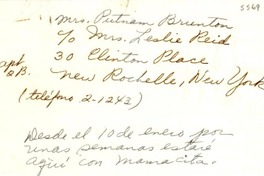 5569
Mrs. Putnam Brunton
c/o Mrs. Leslie Reid
30 Clinton Place
apt 2B.
New Rochelle, New York
(teléfono 2-1243)
Desde el 10 de enero por
unas semanas estaré
aquí con Mamacita.